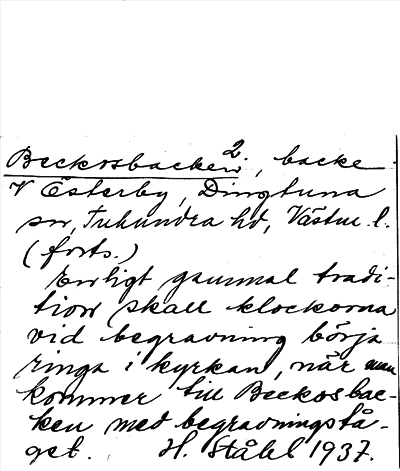 Beckosbacken 2, backe
V Österby, Dingtuna
sn, Tuhundra hd, Västm. l.
(forts.)
Enligt gammal tradi-
tion skall klockorna
vid begravning börja
ringa i kyrkan, när man
kommer till Beckosbac-
ken med begravningstå-
get. H. Ståhl 1937.